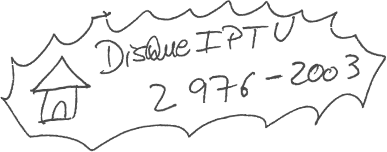 Disque IPTU
2976-2003